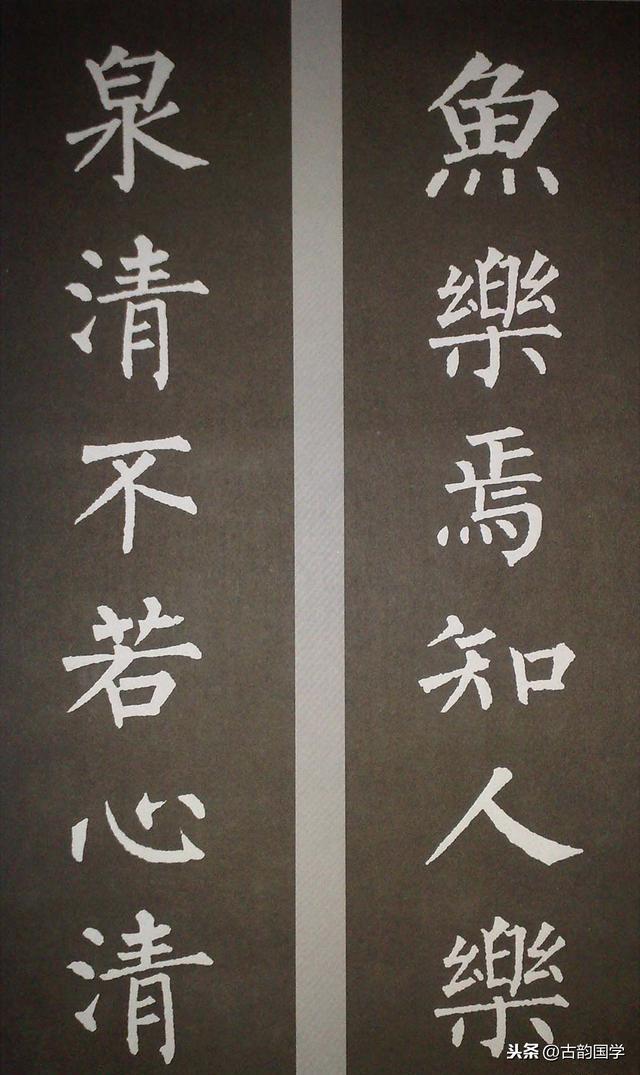 魚樂焉知人樂
泉清不若心清
头条 @古韵国学